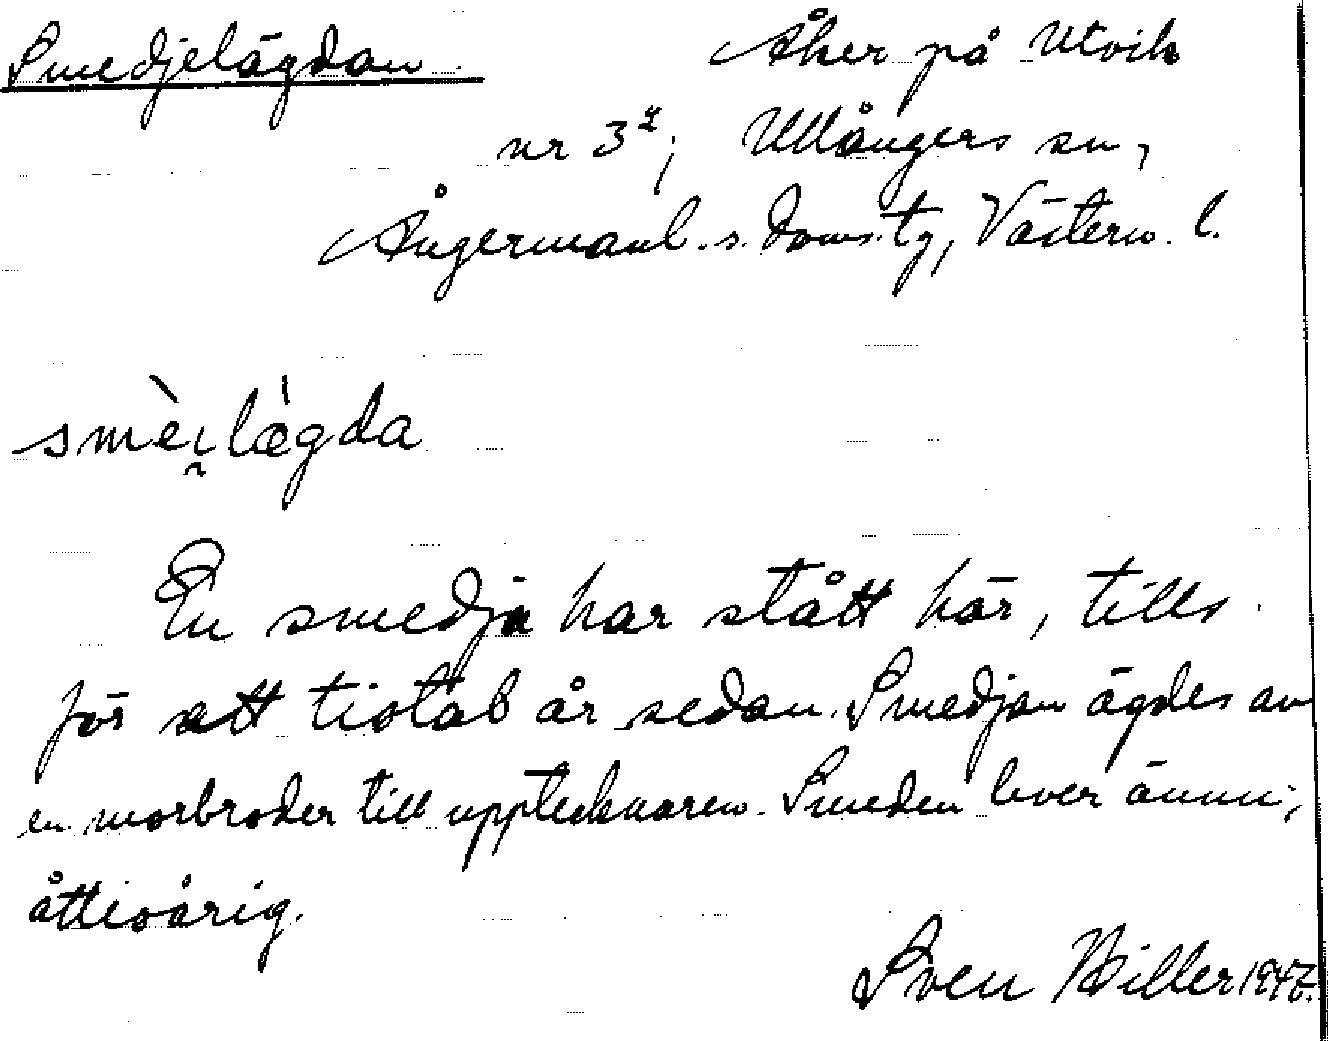 Smedjelägdan Åker på Utvik
nr 3²; Ullångers sn,
Ångermanl. s. doms. tg, Västern. l.
smèi̯lǽgda
En smedja har stått här, tills
för ett tiotal år sedan. Smedjan ägdes av
en morbroder till upptecknaren. Smeden lever ännu,
åttioårig.
Sven Hiller